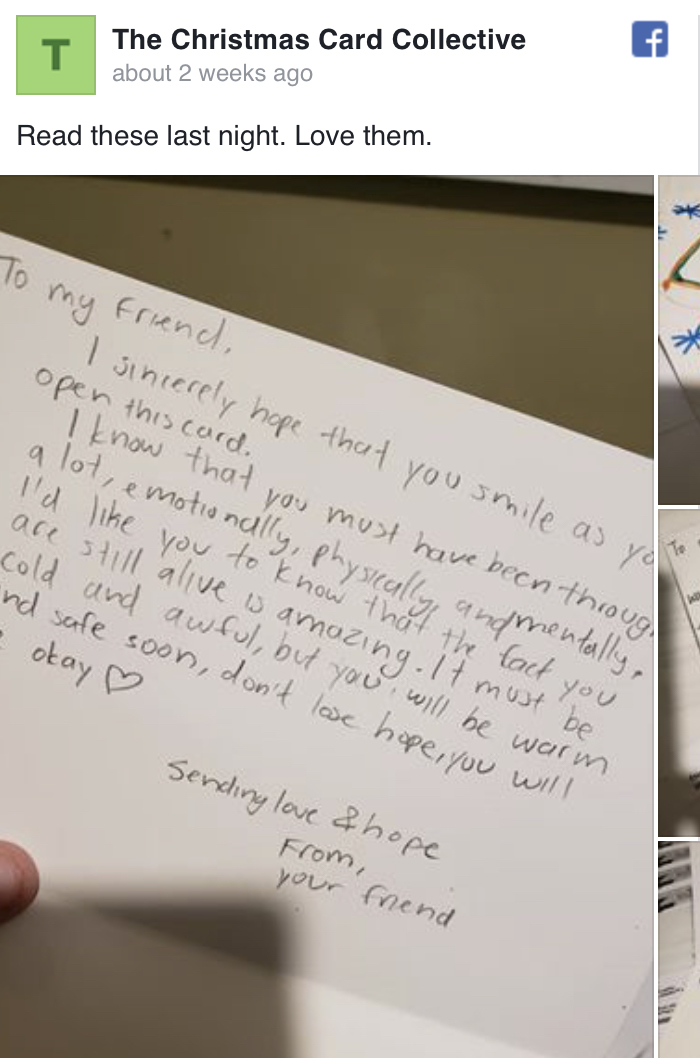 T
The Christmas Card Collective
about 2 weeks ago
Read these last night. Love them.
To my Friend,
I sincerely hope that you smile as yo
open this card.
I know that you must have been throug
a lot, emotionally, physically, and mentally,
I'd like you to know that the fact you
are still alive is amazing. It must be
cold and awful, but you will be warm
nd safe soon, don't lose hope, you will
okay ♡
Sending love & hope
From,
your friend
To